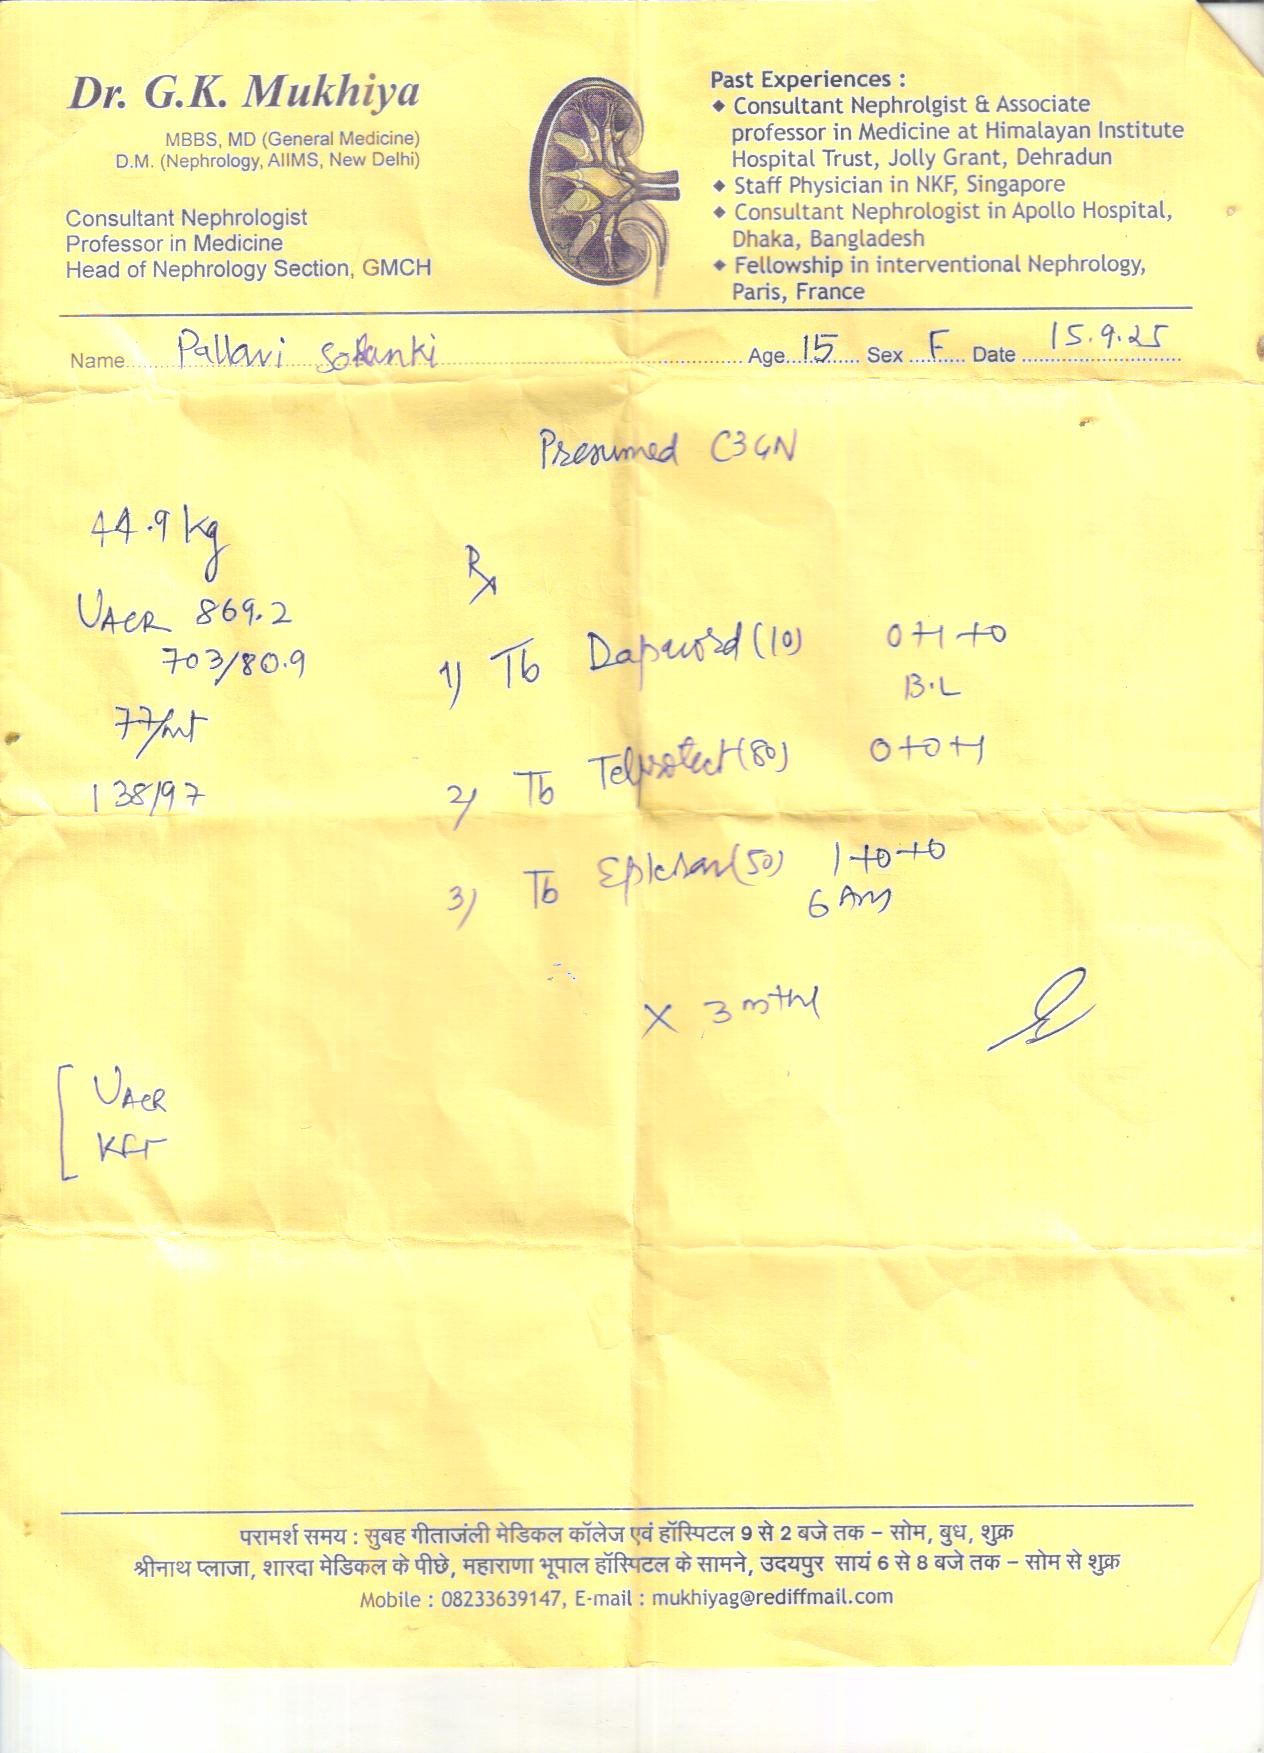 Dr. G.K. Mukhiya
MBBS, MD (General Medicine)
D.M. (Nephrology, AIIMS, New Delhi)
Consultant Nephrologist
Professor in Medicine
Head of Nephrology Section, GMCH
Past Experiences :
◆ Consultant Nephrolgist & Associate
professor in Medicine at Himalayan Institute
Hospital Trust, Jolly Grant, Dehradun
◆ Staff Physician in NKF, Singapore
◆ Consultant Nephrologist in Apollo Hospital,
Dhaka, Bangladesh
◆ Fellowship in interventional Nephrology,
Paris, France
Name Pallavi Solanki Age 15 Sex F Date 15.9.25
Presumed C3GN
44.9 kg
Rx
UACR 869.2
703/80.9
1) Tb (10) 0+1+0
B.L
77/mt
2) Tb (80) 0+0+1
138/97
3) Tb (50) 1+0+0
6 AM
x 3 mth
UACR
KFT
परामर्श समय : सुबह गीताजंली मेडिकल कॉलेज एवं हॉस्पिटल 9 से 2 बजे तक – सोम, बुध, शुक्र
श्रीनाथ प्लाजा, शारदा मेडिकल के पीछे, महाराणा भूपाल हॉस्पिटल के सामने, उदयपुर सायं 6 से 8 बजे तक – सोम से शुक्र
Mobile : 08233639147, E-mail : mukhiyag@rediffmail.com